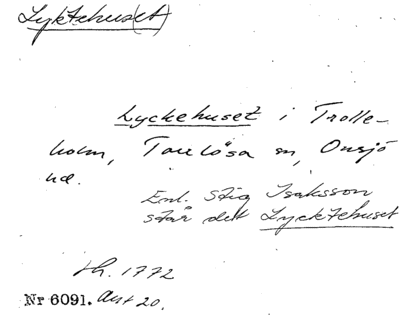 Lyktehus(et)
Lyckehuset i Trolle-
holm, Torrlösa sn, Onsjö
hd.
Enl. Stig Isaksson
står det Lycktehuset
th. 1772
Nr 6091. Avt 20.